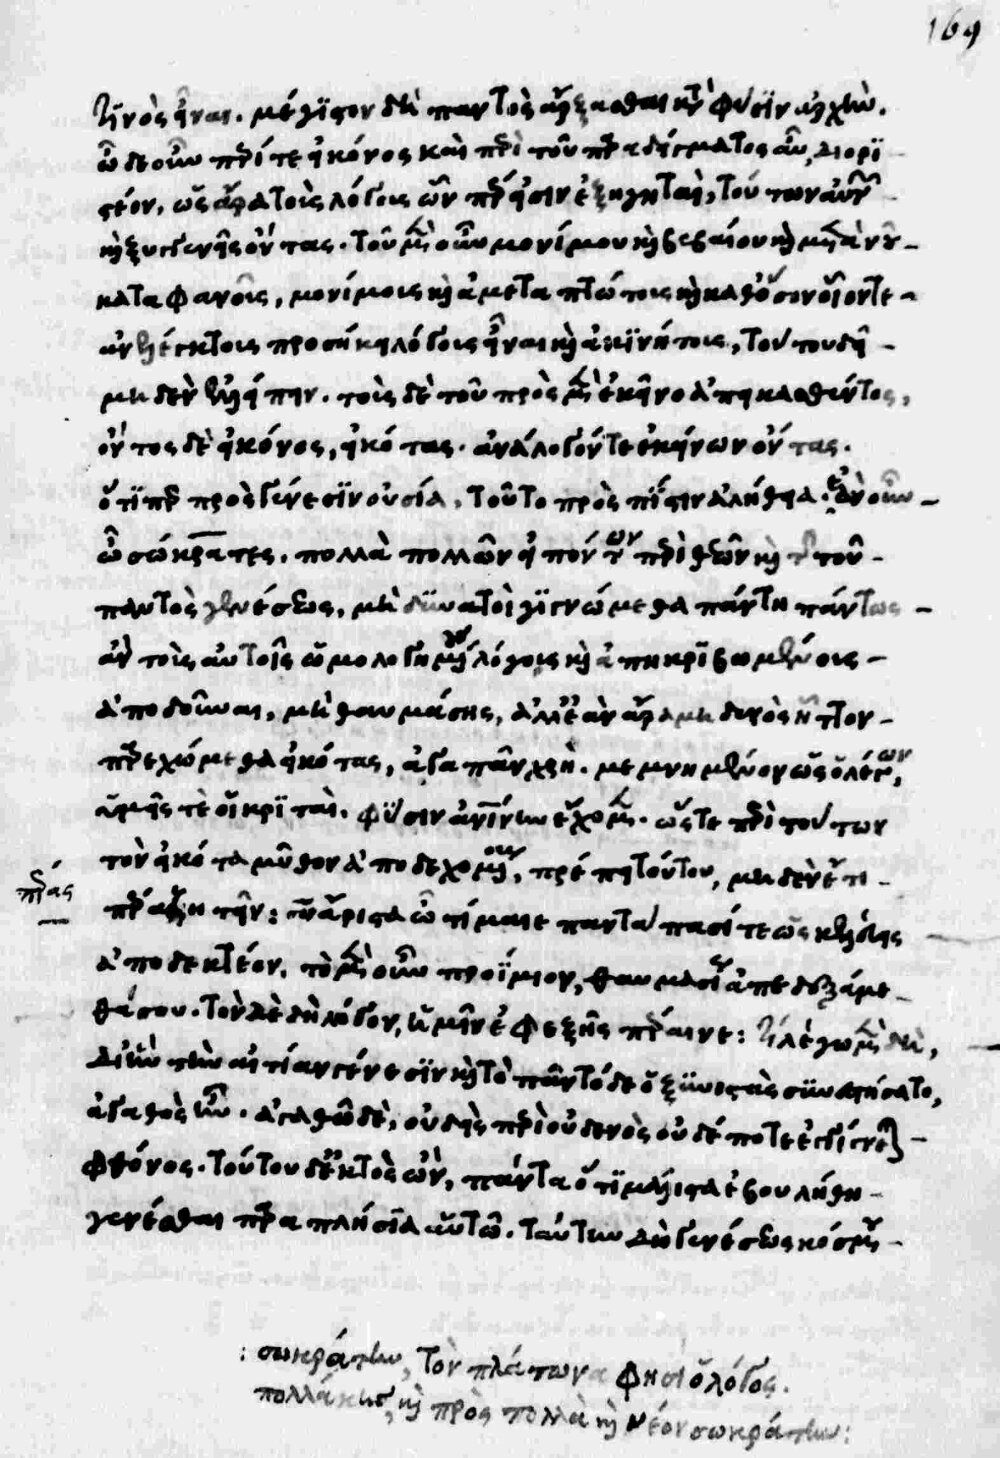 169
τινὸς εἶναι. μέγιστον δὴ παντὸς ἄρξασθαι κατὰ φύσιν ἀρχὴν.
ὧδε οὖν περί τε εἰκόνος καὶ περὶ τοῦ παραδείγματος αὐτῆς διορι
στέον, ὡς ἄρα τοὺς λόγους ὧν πέρ εἰσιν ἐξηγηταὶ, τούτων αὐτῶν
καὶ ξυγγενεῖς ὄντας. τοῦ μὲν οὖν μονίμου καὶ βεβαίου καὶ μετὰ νοῦ
καταφανοῖς, μονίμοις καὶ ἀμεταπτώτοις καὶ καθ' ὅσον οἷόν τε
ἀνελέγκτοις προσήκει λόγοις εἶναι καὶ ἀκινήτοις, τούτου δεῖ
μηδὲν ἐλλείπειν. τοῖς δὲ τοῦ πρὸς μὲν ἐκεῖνο ἀπεικασθέντος,
ὄντος δὲ εἰκόνος, εἰκότας. ἀνάλογόν τε ἐκείνων ὄντας.
ὅτι περ πρὸς γένεσιν οὐσία, τοῦτο πρὸς πίστιν ἀλήθεια. ἐὰν οὖν
ὦ σώκρατες. πολλὰ πολλῶν εἰπόντων περὶ θεῶν καὶ τῆς τοῦ
παντὸς γενέσεως, μὴ δυνατοὶ γιγνώμεθα πάντη πάντως
ἀν τοῖς αὐτοῖς ὡμολογημένους λόγοις καὶ ἀπηκριβωμένους
ἀποδοῦναι, μὴ θαυμάσῃς, ἀλλ' ἐὰν ἄρα μηδενὸς ἧττον
παρεχώμεθα εἰκότας, ἀγαπᾶν χρὴ. μεμνημένον ὡς ὁ λέγων,
ὑμεῖς τὲ οἱ κριταὶ. φύσιν ἀνθρωπίνην ἔχομεν. ὥστε περὶ τούτων
τὸν εἰκότα μῦθον ἀποδεχομένους, πρέπει τούτου, μηδὲν ἔτι
πέρας
πέρα ζητεῖν: ἄριστα ὦ τίμαιε παντάπασί τε ὡς κελεύεις
ἀποδεκτέον. τὸ μὲν οὖν προοίμιον, θαυμασίως ἀπεδεξάμε
θά σου. τὸν δὲ δὴ νόμον, ἡμῖν ἐφεξῆς πέραινε: λέγωμεν δὴ,
δι' ἣν τινὰ αἰτίαν γένεσιν καὶ τὸ πᾶν τόδε ὁ ξυνιστὰς συνεστήσατο,
ἀγαθὸς ἦν. ἀγαθῶ δὲ, οὐδεὶς περὶ οὐδενὸς οὐδέποτε ἐγγίγνεται
φθόνος. τούτου δ' ἐκτὸς ὢν, πάντα ὅτι μάλιστα ἐβουλήθη
γενέσθαι παραπλήσια αὑτῶ. ταύτην δὴ γενέσεως κόσμου
: σωκράτην, τὸν πλάτωνα φησὶ ὁ λόγος.
πολλάκις καὶ πρὸς πολλὰ καὶ νέον σωκράτην: